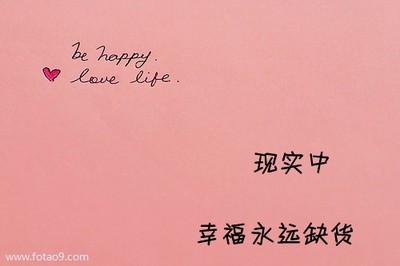 be happy.
love life.
现实中
幸福永远缺货
www.fotao9.com